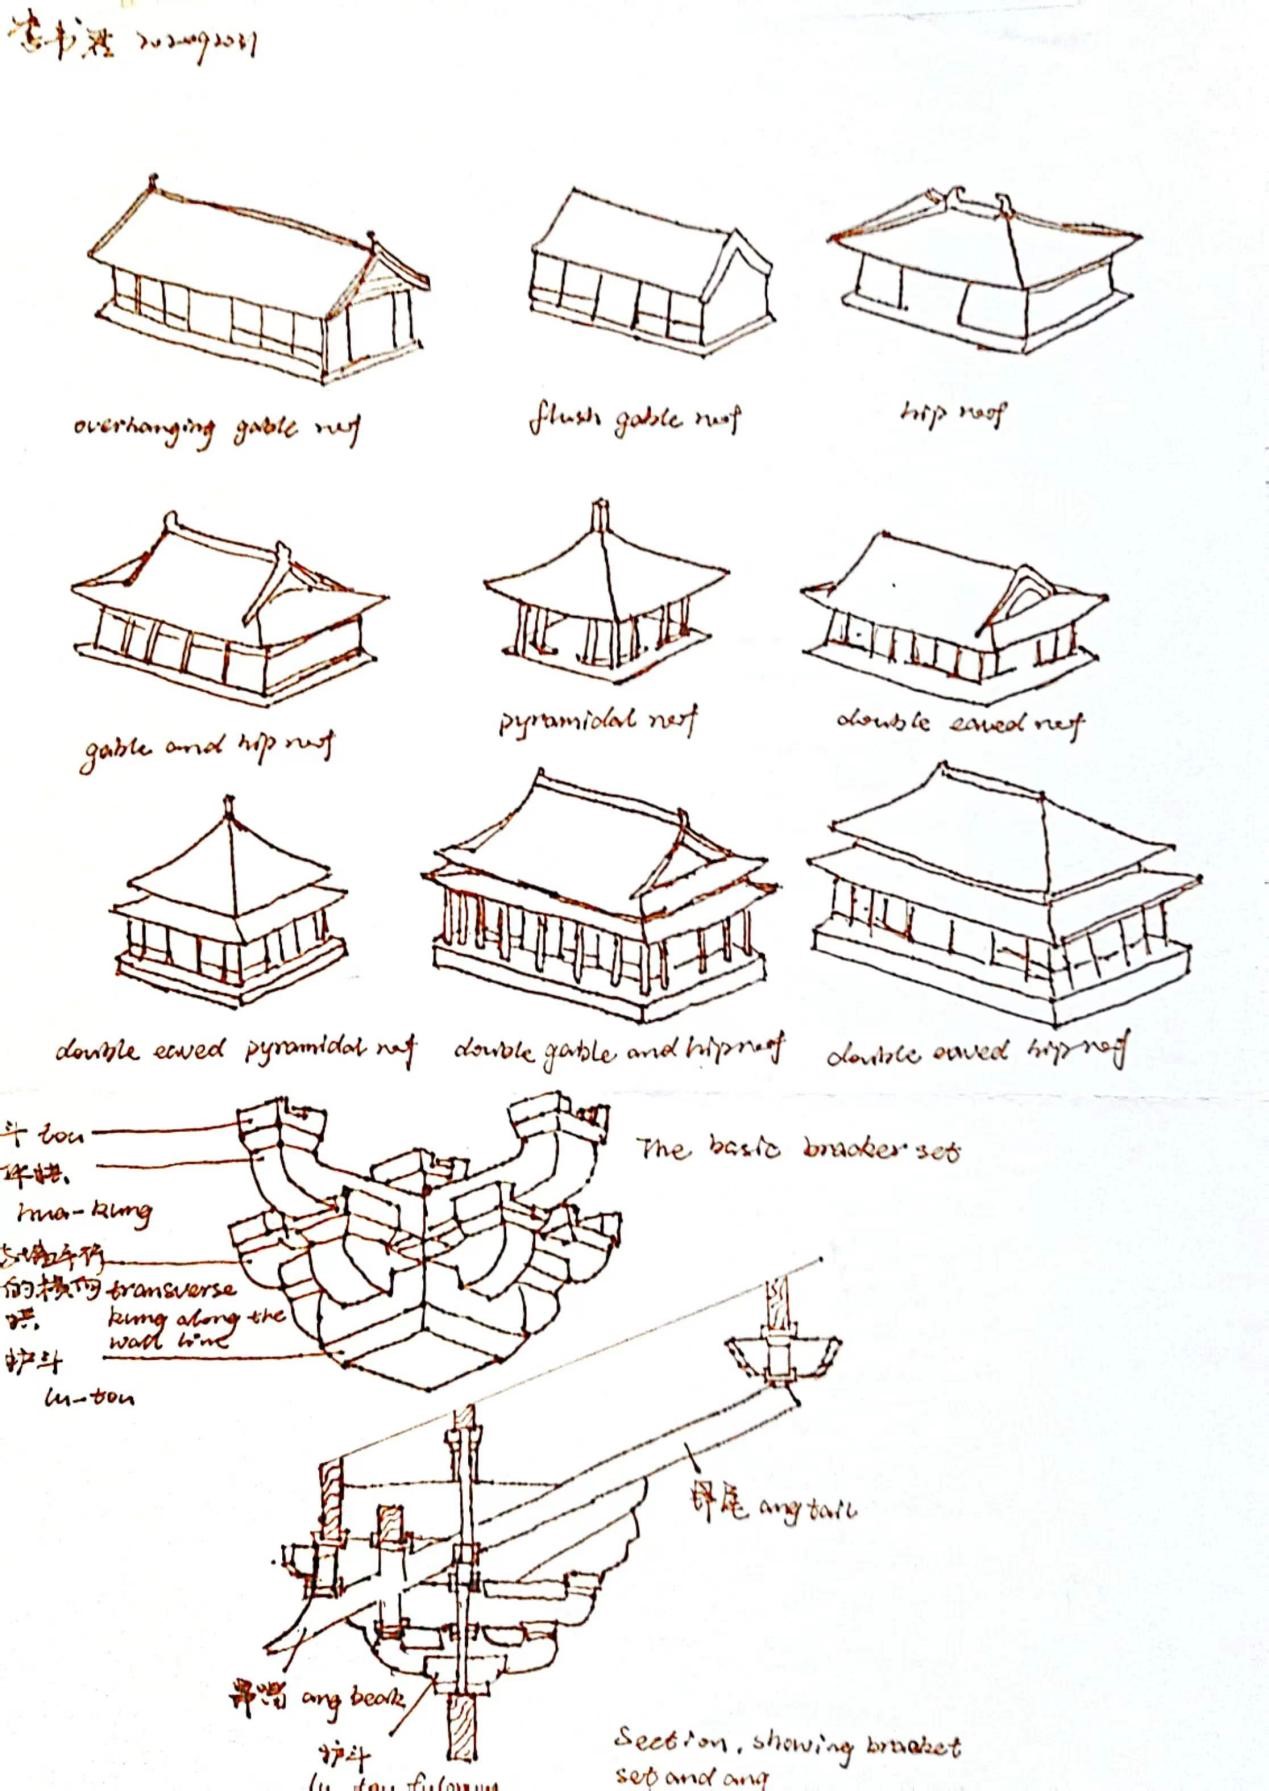 李书 202092031
overhanging gable roof
flush gable roof
hip roof
gable and hip roof
pyramidal roof
double eaved roof
double eaved pyramidal roof
double gable and hip roof
double eaved hip roof
斗 tou
The basic bracker set
hua-kung
的横向 transverse
拱 kung along the
wall line
斗
lu-tou
昂尾 ang tail
昂嘴 ang beak
斗
Section, showing bracket
set and ang